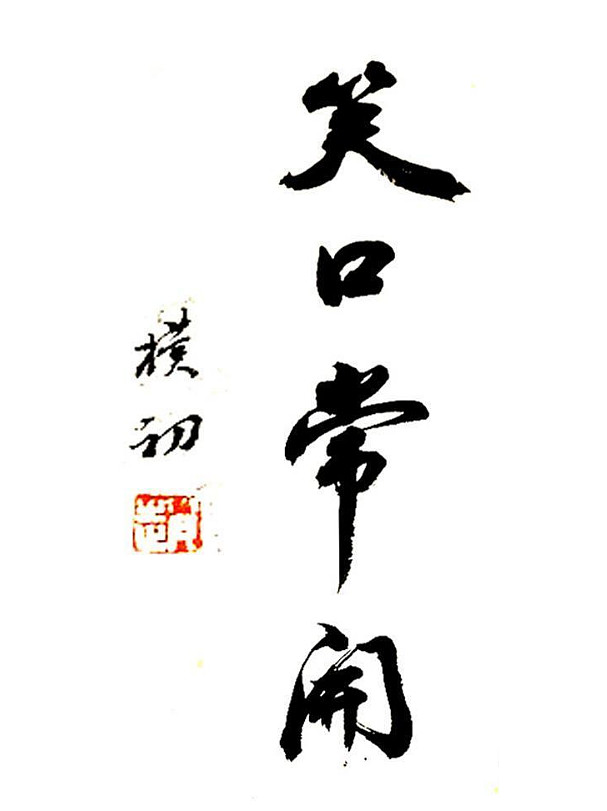 笑口常開
樸初